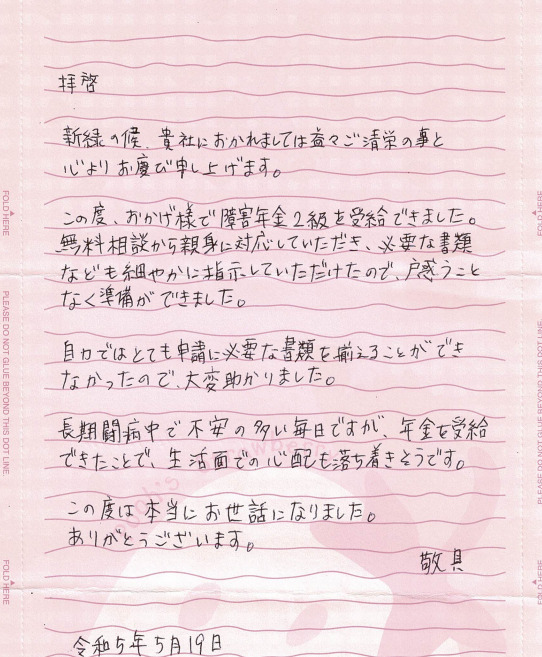 拝啓
新緑の候、貴社におかれましては益々ご清栄の事と
心よりお慶び申し上げます。
この度、おかげ様で障害年金2級を受給できました。
無料相談から親身に対応していただき、必要な書類
なども細やかに指示していただけたので、戸惑うこと
なく準備ができました。
自力ではとても申請に必要な書類を揃えることができ
なかったので、大変助かりました。
長期闘病中で不安の多い毎日ですが、年金を受給
できたことで、生活面での心配も落ち着きそうです。
この度は本当にお世話になりました。
ありがとうございます。
敬具
令和5年5月19日
FOLD HERE
PLEASE DO NOT GLUE BEYOND THIS DOT LINE.
FOLD HERE
FOLD HERE
PLEASE DO NOT GLUE BEYOND THIS DOT LINE
FOLD HERE